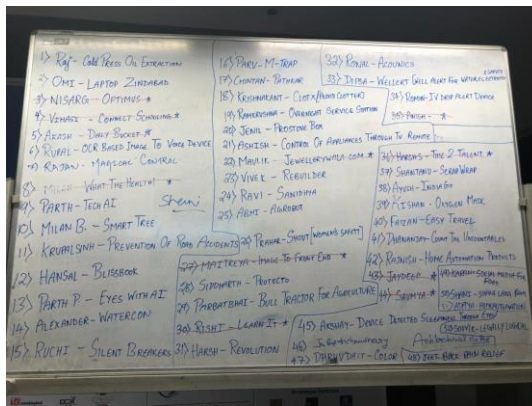 1> Raj - Cold Press Oil Extraction
2> Omi - Laptop Zindabad
3> Nisarg - Optimus *
4> Vimage - Connect Schooling *
5> Akash - Daily Bucket *
6> Rupal - OCR Based Image To Voice Device
7> Rajan - Magical Control
8> Milan - What The Health! *
9> Parth - Tech AI
Shemi
10> Milan B. - Smart Tree
11> Krupalsinh - Prevention Of Road Accidents
12> Hansal - Blissbook
13> Parth P. - Eyes With AI
14> Alexander - Watercon
15> Ruchi - Silent Breakers
16> Parv - M-Trap
17> Chintan - Pathkar
18> Krishnakant - Clotx (Blood Clotter)
19> Ramkrishna - Overnight Service Station
20> Jenil - Prostove Box
21> Ashish - Control Of Appliances Through TV Remote
22> Maulik - Jewellerywala.com *
23> Vivek - Rebuilder
24> Ravi - Sanidhya
25> Abhi - Agrobot
26> Prahar - Shout [Women's Safety]
27> Maitreya - Image To Front End *
28> Siddharth - Protecto
29> Parbatbhai - Bull Tractor For Agriculture
30> Rishi - Learn It *
31> Harsh - Revolution
32> Ronal - Acounics
33> Dipsa - Wellert Well Alert For Natural
34> Roman - IV Drop Alert Device
35> Anish - *
36> Harsh S - Time 2 Talent *
37> Shantanu - Scrap Wrap
38> Ayush - India Go
39> Kishan - Oxygen Mask
40> Faizan - Easy Travel
41> Dhananjay - Count The Uncountables
42> Rajnish - Home Automation Products
43> Jaydeep *
44> Saumya *
45> Akshay - Device Detected Sleepiness Through Eyes
46>
47> Dhruvdait - Color
48> Jeet - Back Pain Relief